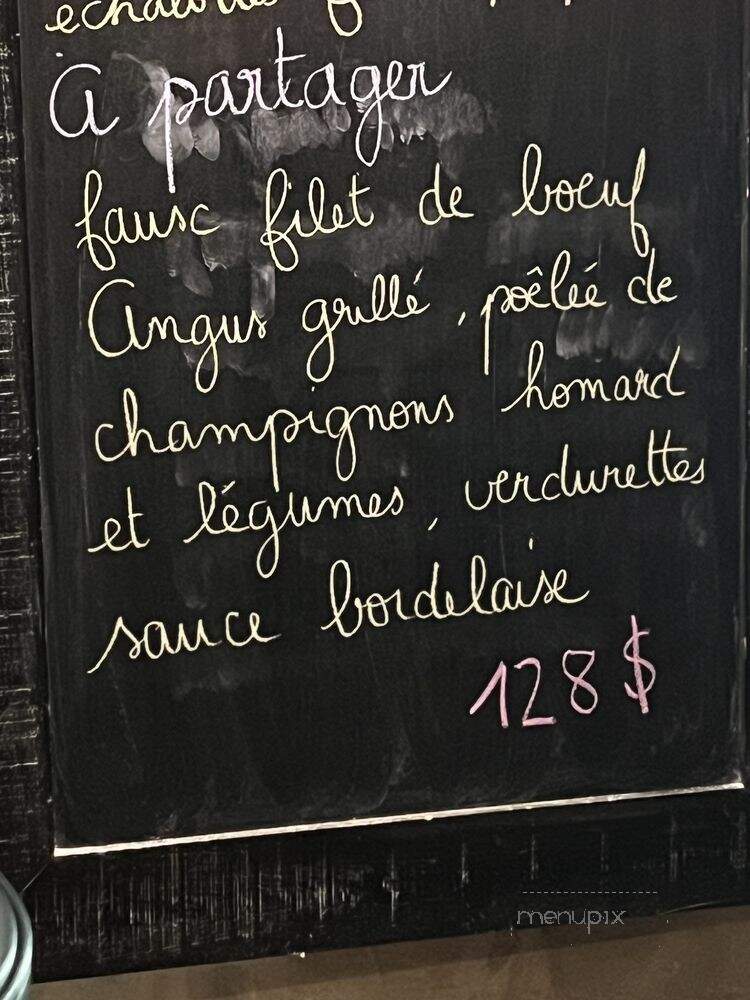 échalotes
à partager
faux filet de boeuf
Angus grillé, poêlée de
champignons homard
et légumes, verdurettes
sauce bordelaise
128 $
menupix